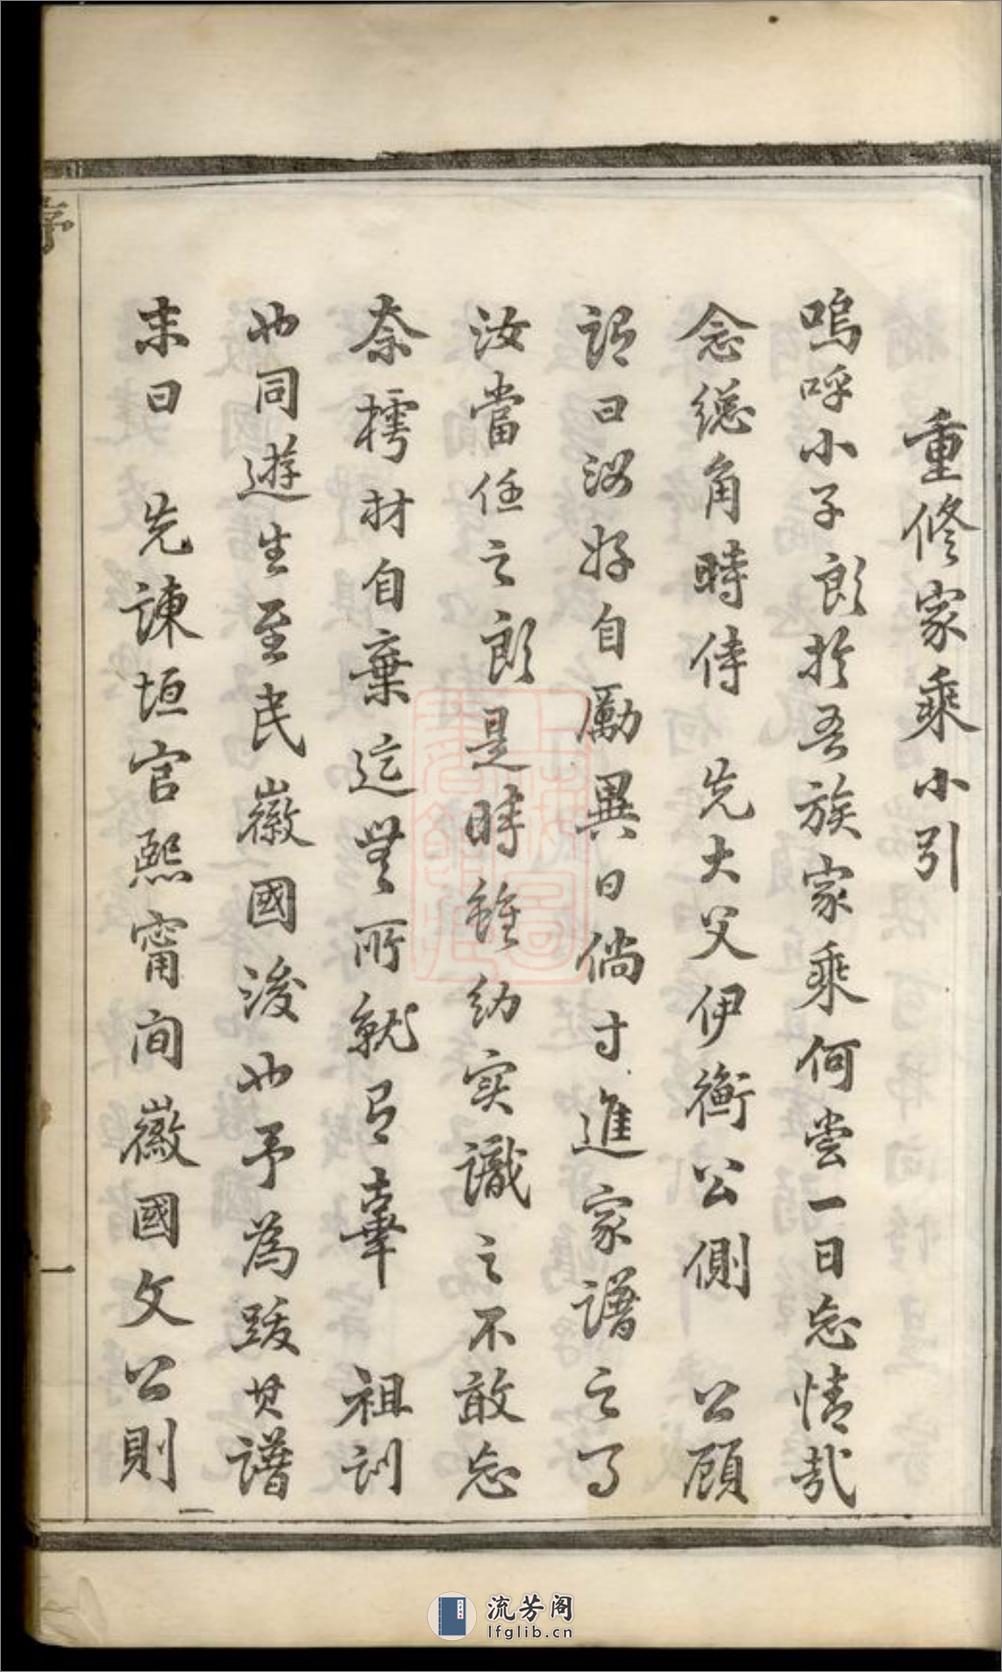 重修家乘小引
嗚呼小子郎於吾族家乘何嘗一日忘情哉
念總角時侍　先大父伊衡公側　公顧
謂曰汝好自勵異日倘寸進家譜之事
汝當任之郎是時雖幼实識之不敢忘
奈樗材自棄迄無所就有辜　祖訓
也同遊生至民徽國後也予為跋其譜
末曰　先諫垣官熙甯间徽國文公則
序
一
流芳阁
lfglib.cn